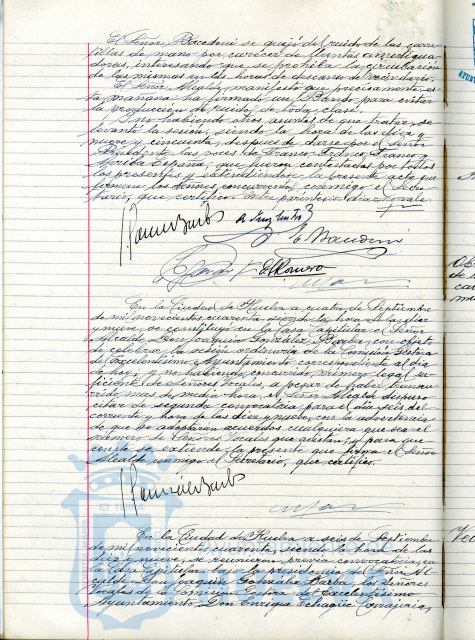 El Señor Bacedoni se quejó del ruido de las carre-
tillas de mano por carecer de llantas amortigua-
doras, interesando que se prohiba la circulación
de las mismas en las horas de descanso del vecindario.
El Señor Alcalde manifestó que precisamente es-
ta mañana ha firmado un Bando para evitar
la producción de ruidos de toda clase.
Y no habiendo otros asuntos de que tratar, se
levantó la sesión, siendo la hora de las diez y
nueve y cincuenta, después de darse por el Señor
Presidente las voces de Franco, Franco, Franco y
Arriba España, que fueron contestadas por todos
los presentes y extendiéndose la presente acta que
firman los señores concurrentes conmigo el Secre-
tario, que certifico.
E. Romero
En la Ciudad de Huelva a cuatro de Septiembre
de mil novecientos cuarenta, siendo la hora de las diez
y nueve, se constituyó en la Casa Capitular el Señor
Alcalde Don Joaquín González Barba, con objeto
de celebrar la sesión ordinaria de la Comisión Gestora
del Excelentísimo Ayuntamiento correspondiente al día
de hoy; y no habiendo concurrido número legal su-
ficiente de Señores Vocales, a pesar de haber transcu-
rrido más de media hora, el Señor Alcalde dispuso
citar de segunda convocatoria para el día seis del
corriente y hora de las diez y nueve, con la advertencia
de que se adoptarán acuerdos cualquiera que sea el
número de Señores Vocales que asistan; y para que
conste se extiende la presente que firma el Señor
Alcalde conmigo el Secretario, que certifico.
En la Ciudad de Huelva a seis de Septiembre
de mil novecientos cuarenta, siendo la hora de las
diez y nueve, se reunieron previa convocatoria, en
la Casa Capitular, bajo la presidencia del Señor Al-
calde Don Joaquín González Barba, los Señores
Vocales de la Comisión Gestora del Excelentísimo
Ayuntamiento, Don Enrique Echagüe